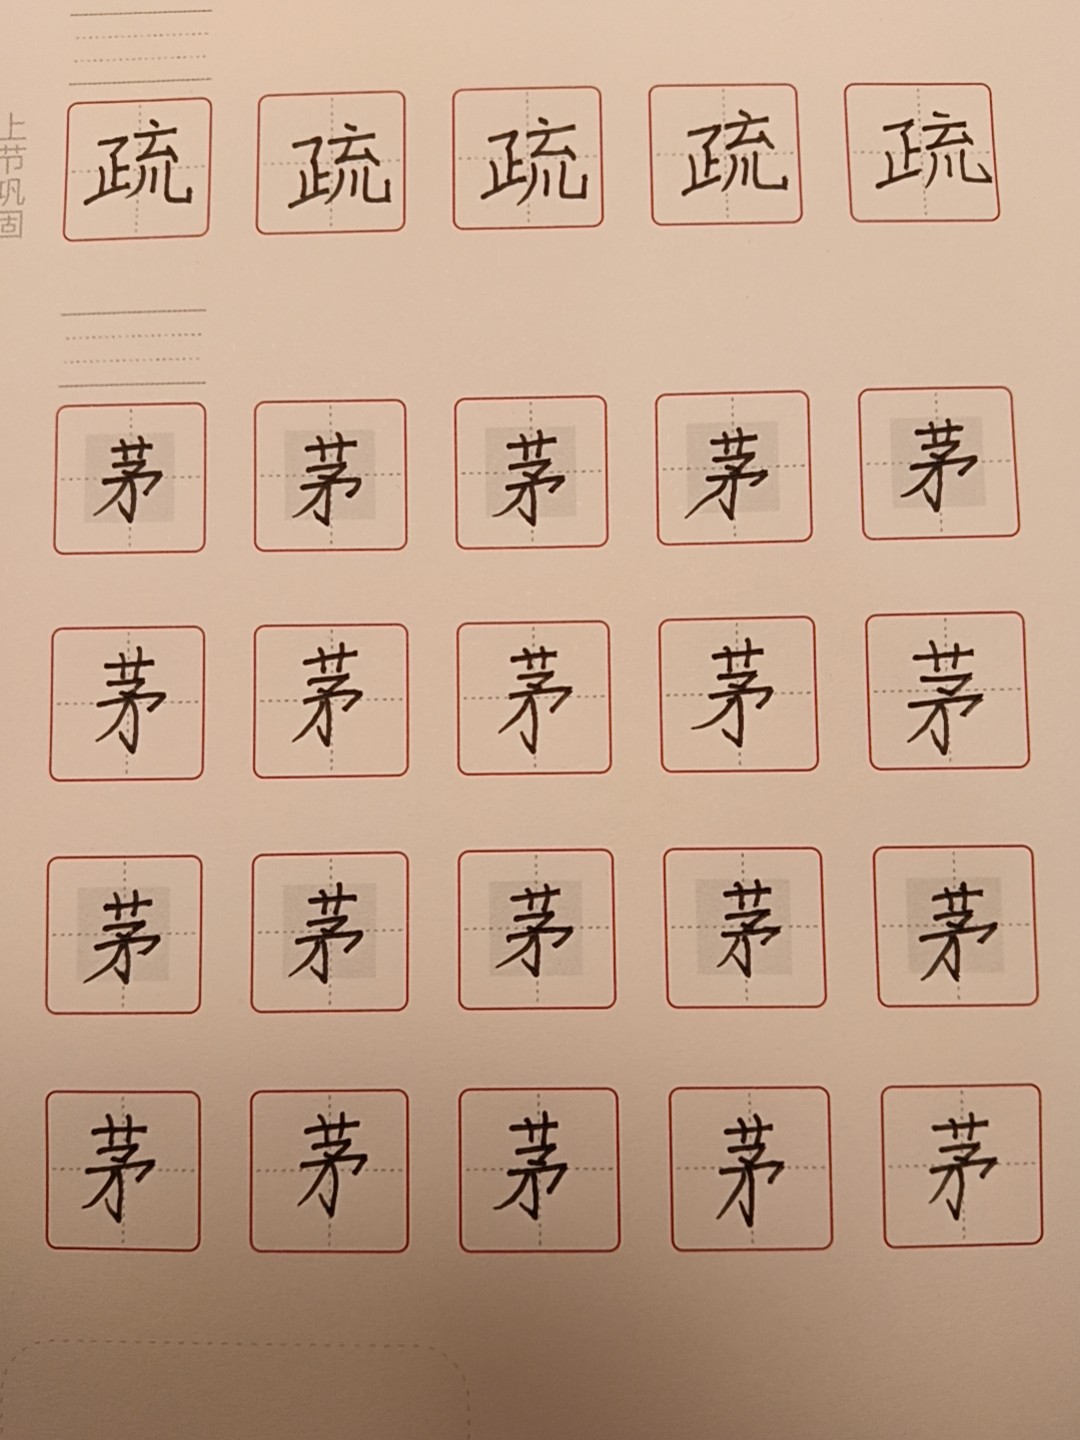 上节巩固
疏 疏 疏 疏 疏
茅 茅 茅 茅 茅
茅 茅 茅 茅 茅
茅 茅 茅 茅 茅
茅 茅 茅 茅 茅